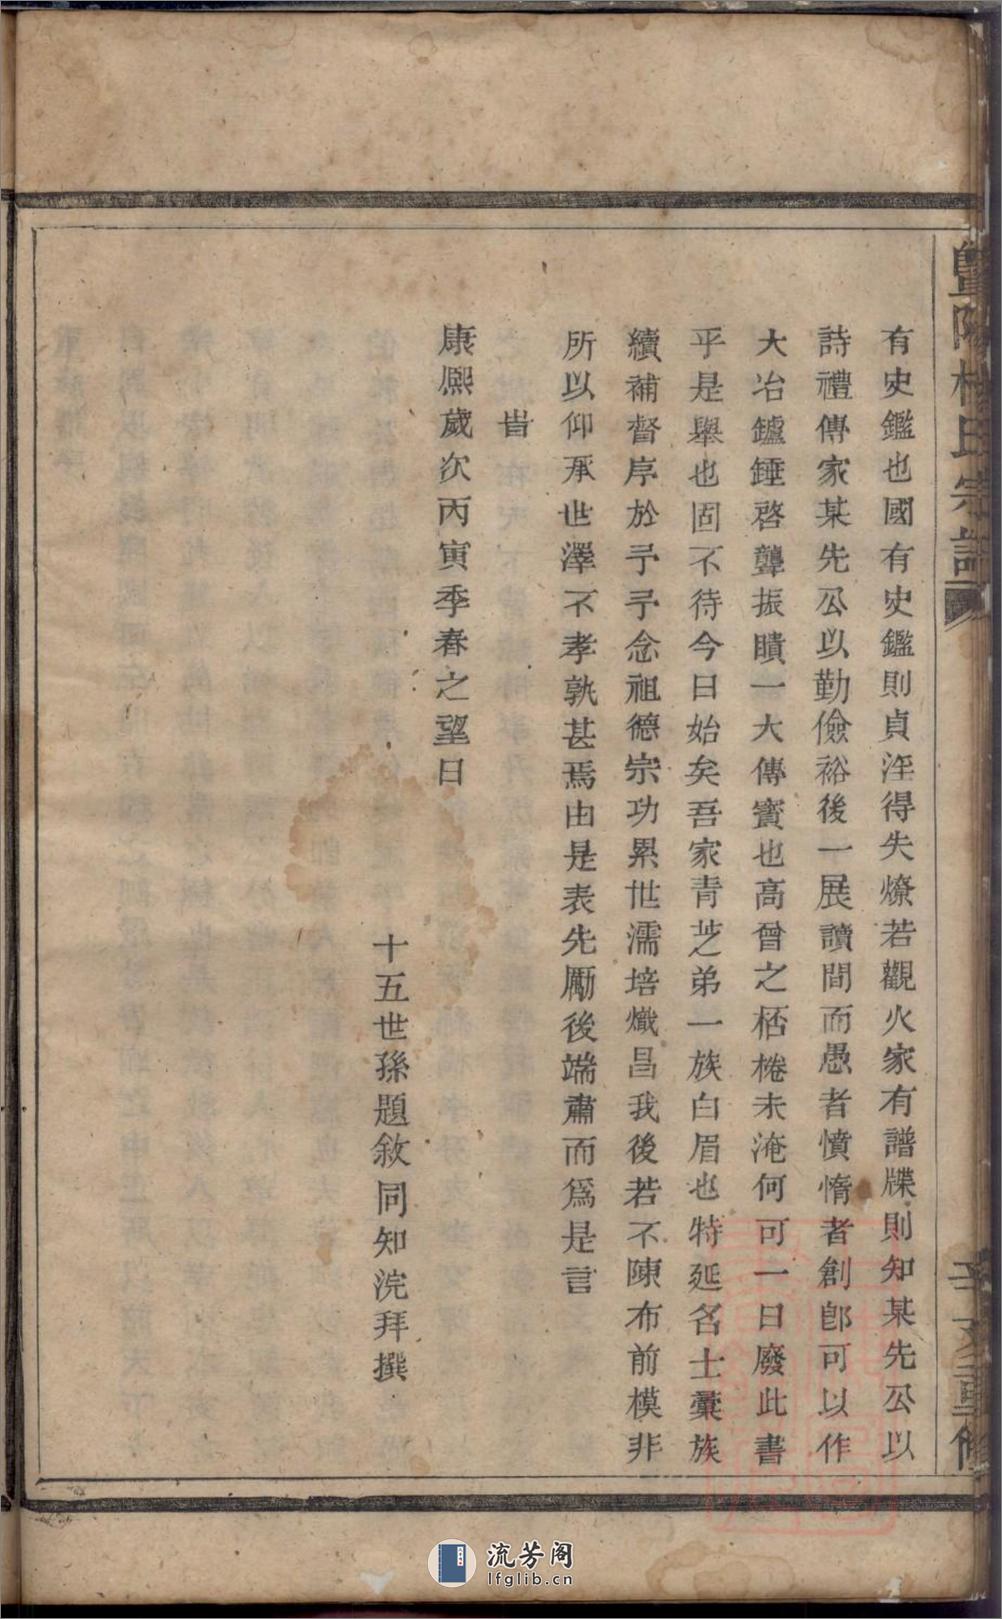 有史鑑也國有史鑑則貞淫得失燎若觀火家有譜牒則知某先公以
詩禮傳家某先公以勤儉裕後一展讀間而愚者憤惰者創卽可以作
大冶鑪錘啓聾振瞶一大傳寶也高曾之桮棬未淹何可一日廢此書
乎是舉也固不待今日始矣吾家青芝弟一族白眉也特延名士彚族
續補督序於予予念祖德宗功累世濡培熾昌我後若不陳布前模非
所以仰承世澤不孝孰甚焉由是表先勵後端肅而爲是言
旹
康熙歲次丙寅季春之望日
十五世孫題敘同知浣拜撰
暨陽 氏宗譜
重修
流芳阁
lfglib.cn